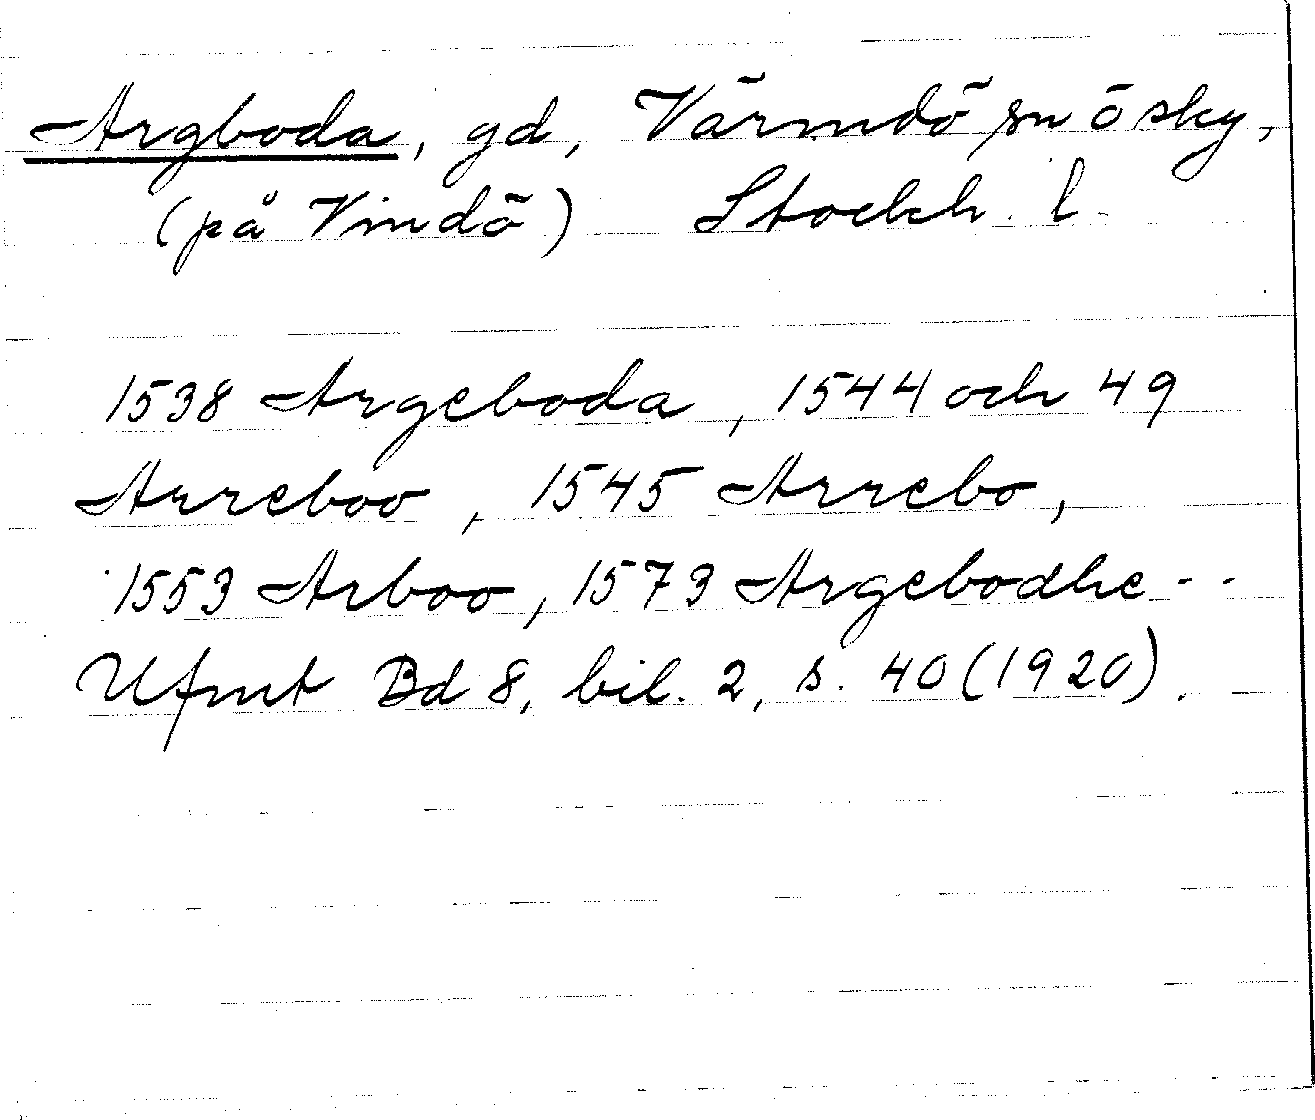 Argboda, gd, Värmdö sn ö sky,
(på Vindö) Stockh. l.
1538 Argeboda, 1544 och 49
Arreboo, 1545 Arrebo,
1553 Arboo, 1573 Argebodhe --
Ufmt Bd 8, bil. 2, s. 40 (1920).